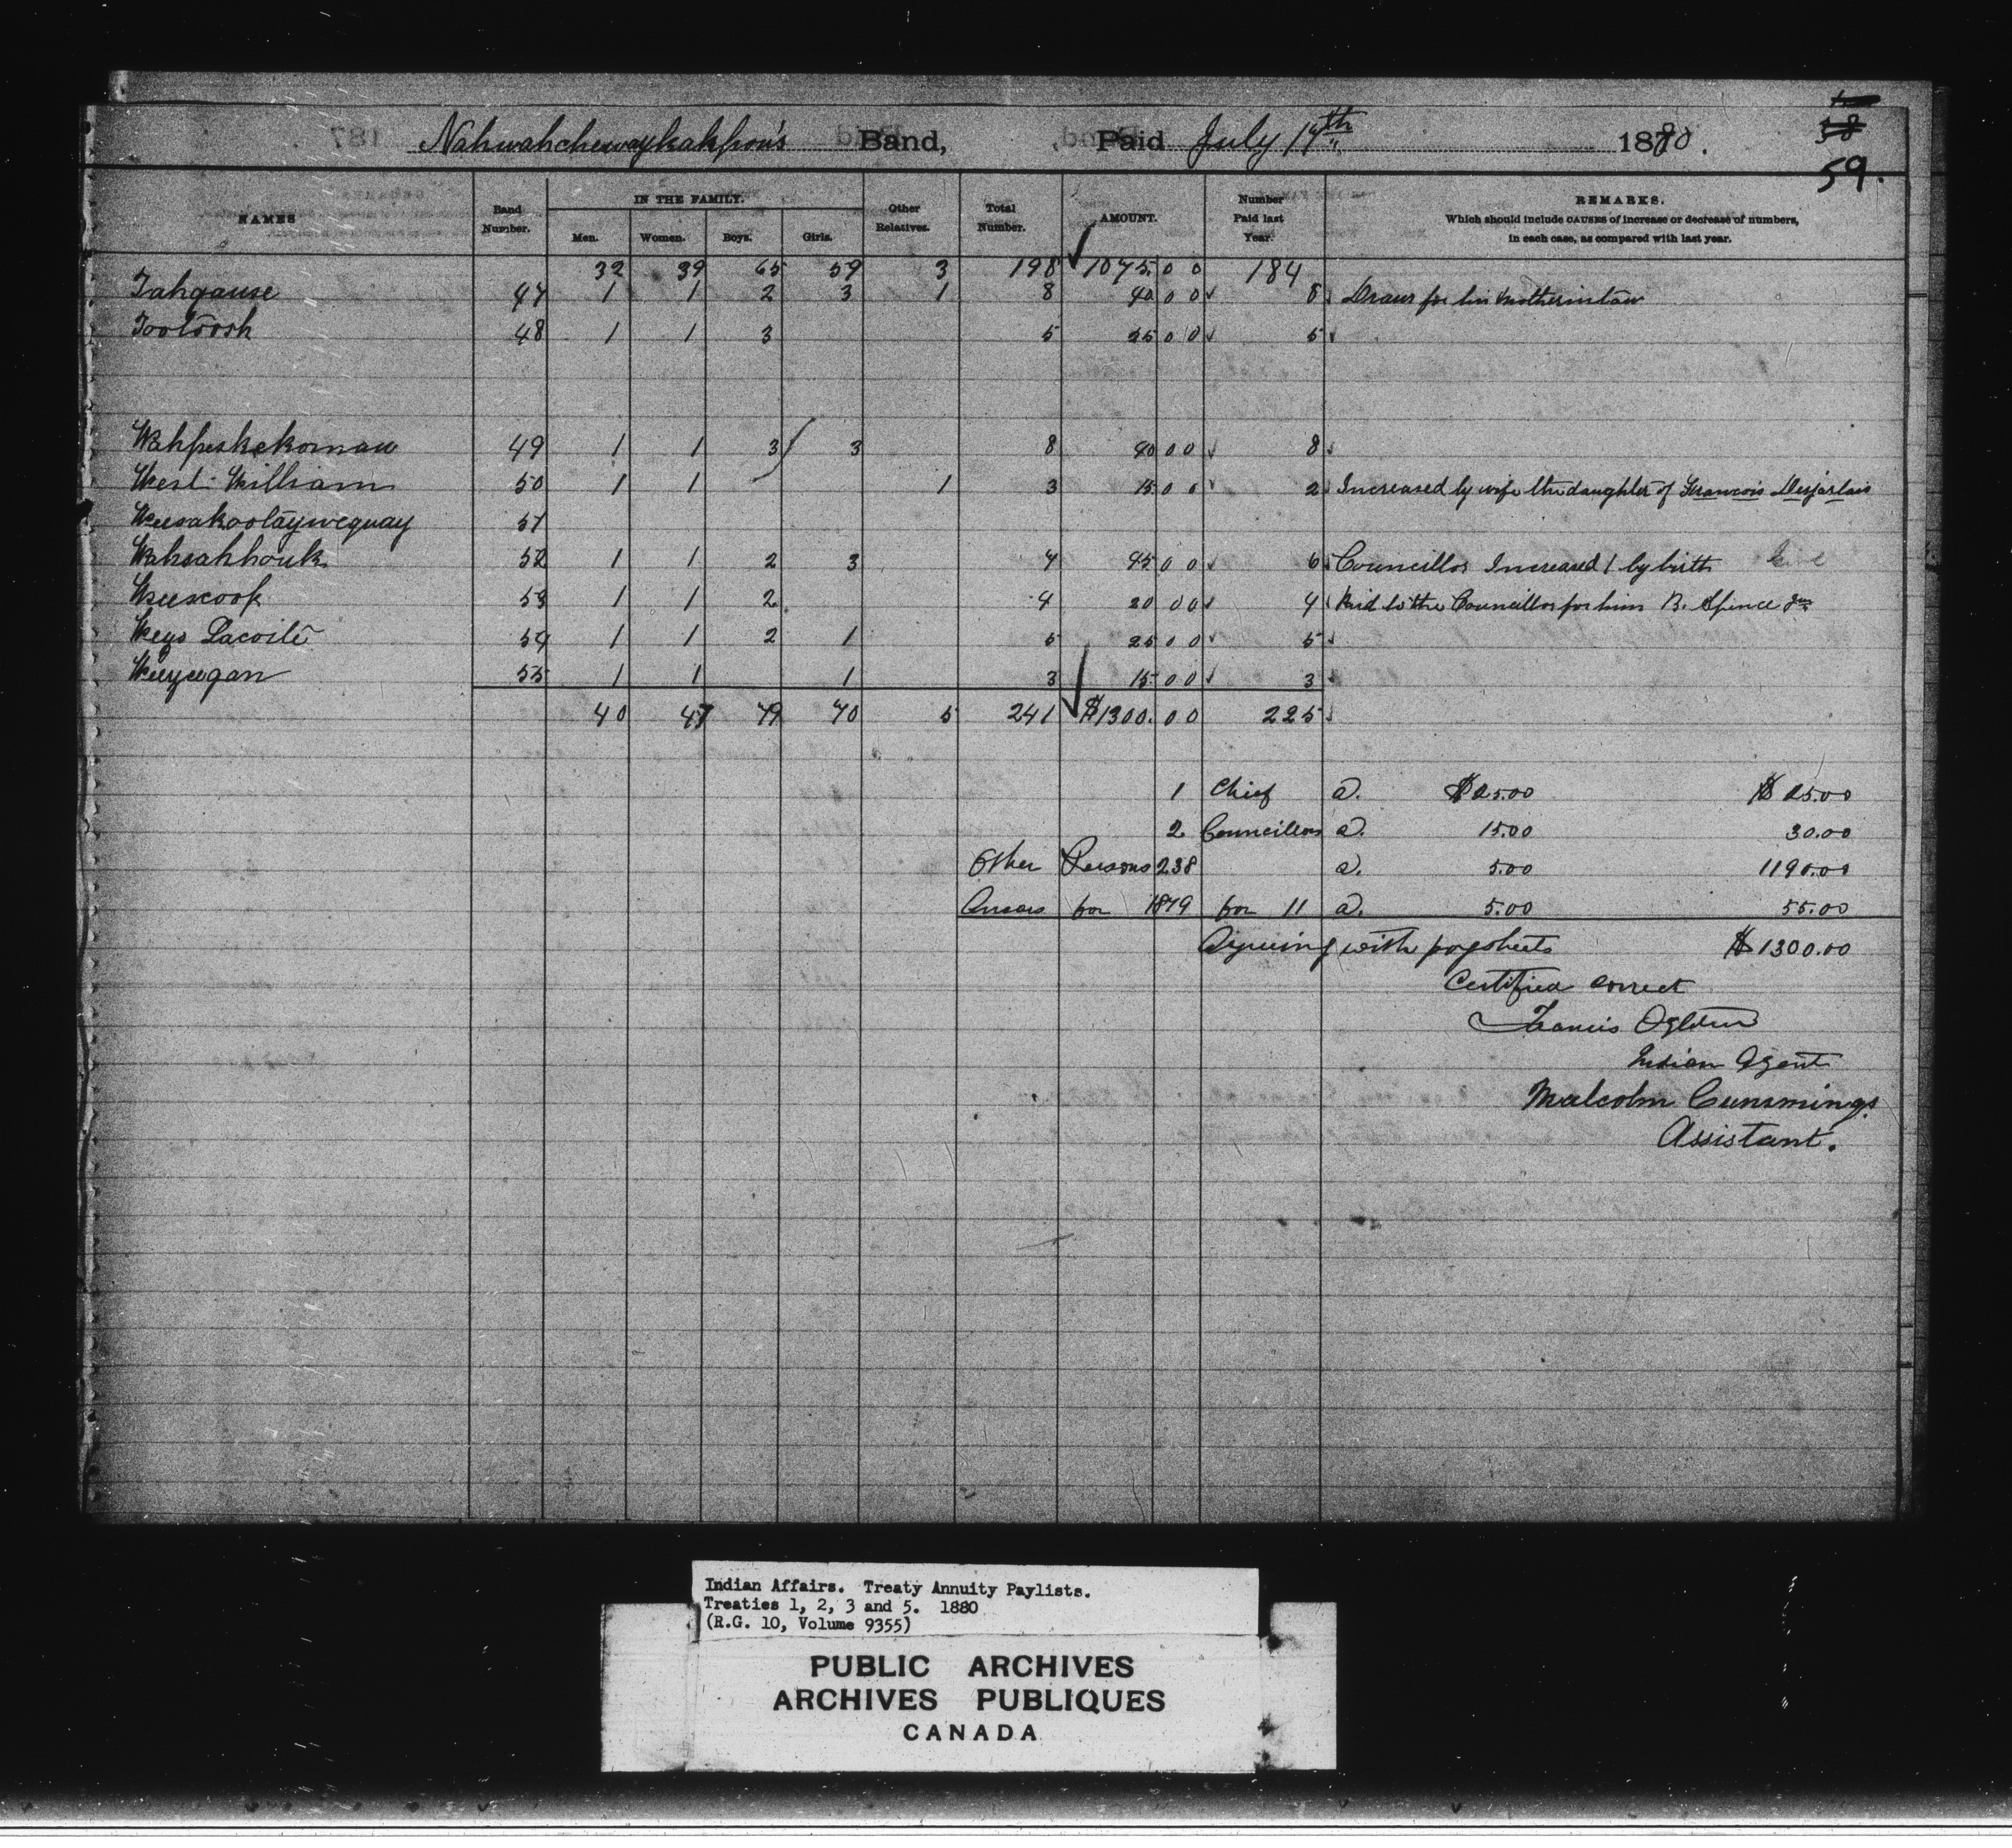 Nahwahchewaykahpow's Band, Paid July 17th 1880.
38
59.
NAMES Band Number. IN THE FAMILY. Men. Women. Boys. Girls. Other Relatives. Total Number. AMOUNT. Number Paid last Year. REMARKS. Which should include CAUSES of increase or decrease of numbers, in each case, as compared with last year.
32 39 65 59 3 198 1075.00 184
Tahgause 47 1 1 2 3 1 8 40 00 8 Draws for his motherinlaw
Tootoosh 48 1 1 3 5 25 00 5
Wahpeskekoman 49 1 1 3 3 8 40 00 8
West William 50 1 1 1 3 15 00 2 Increased by wife the daughter of Francois Desjarlais
Weesakootaywequay 51
Wahsahhouk 52 1 1 2 3 7 45 00 6 Councillor Increased 1 by birth
Weescoop 53 1 1 2 4 20 00 4 Paid to the Councillor for him B. Spence Jnr
Weys Lacoité 54 1 1 2 1 5 25 00 5
Weeyeegan 55 1 1 1 3 15 00 3
40 47 79 70 5 241 $1300.00 225
1 Chief @. $25.00 $25.00
2 Councillors @. 15.00 30.00
Other Persons 238 @. 5.00 1190.00
Arrears for 1879 for 11 @. 5.00 55.00
Agreeing with paysheets $1300.00
Certified correct
Francis Ogletree
Indian Agent
Malcolm Cummings
Assistant.
Indian Affairs. Treaty Annuity Paylists.
Treaties 1, 2, 3 and 5. 1880
(R.G. 10, Volume 9355)
PUBLIC ARCHIVES
ARCHIVES PUBLIQUES
CANADA